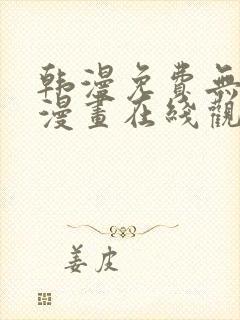 韩漫免费無
漫畫在綫觀
姜皮